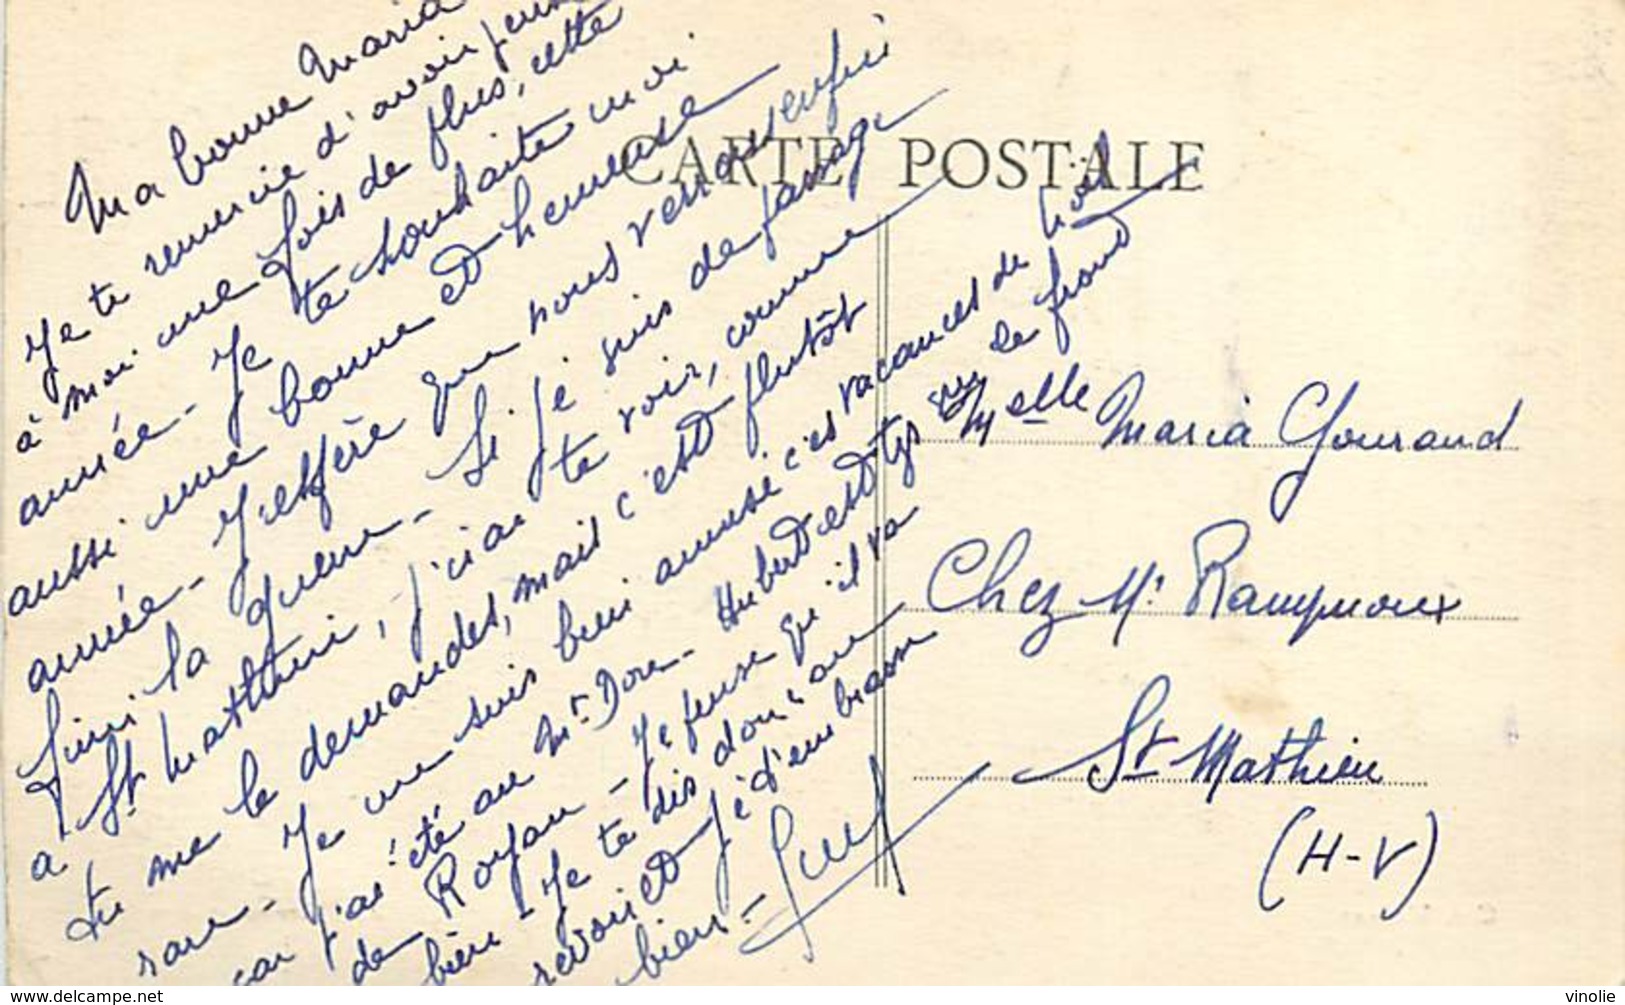 Ma bonne Maria
Je te remercie d'avoir pensé
à moi une fois de plus, cette
année - Je te souhaite moi
aussi une bonne et heureuse
année - J'espère que nous verrons enfin
fini la guerre - Si je suis de passage
à St Mathieu, j'irai te voir, comme
tu me le demandes, mais c'est plutôt
rare - Je me suis bien amusé c'es vacances de Noël
car j'ai été au Mt Dore - Hubert est tjs sur le front
de Royan - Je pense qu'il va
bien - Je te dis donc au
revoir et je t'embrasse
bien -
CARTE POSTALE
Melle Maria Gouraud
Chez Mr Rampnoux
St Mathieu
(H-V)
delcampe.net
vinolie